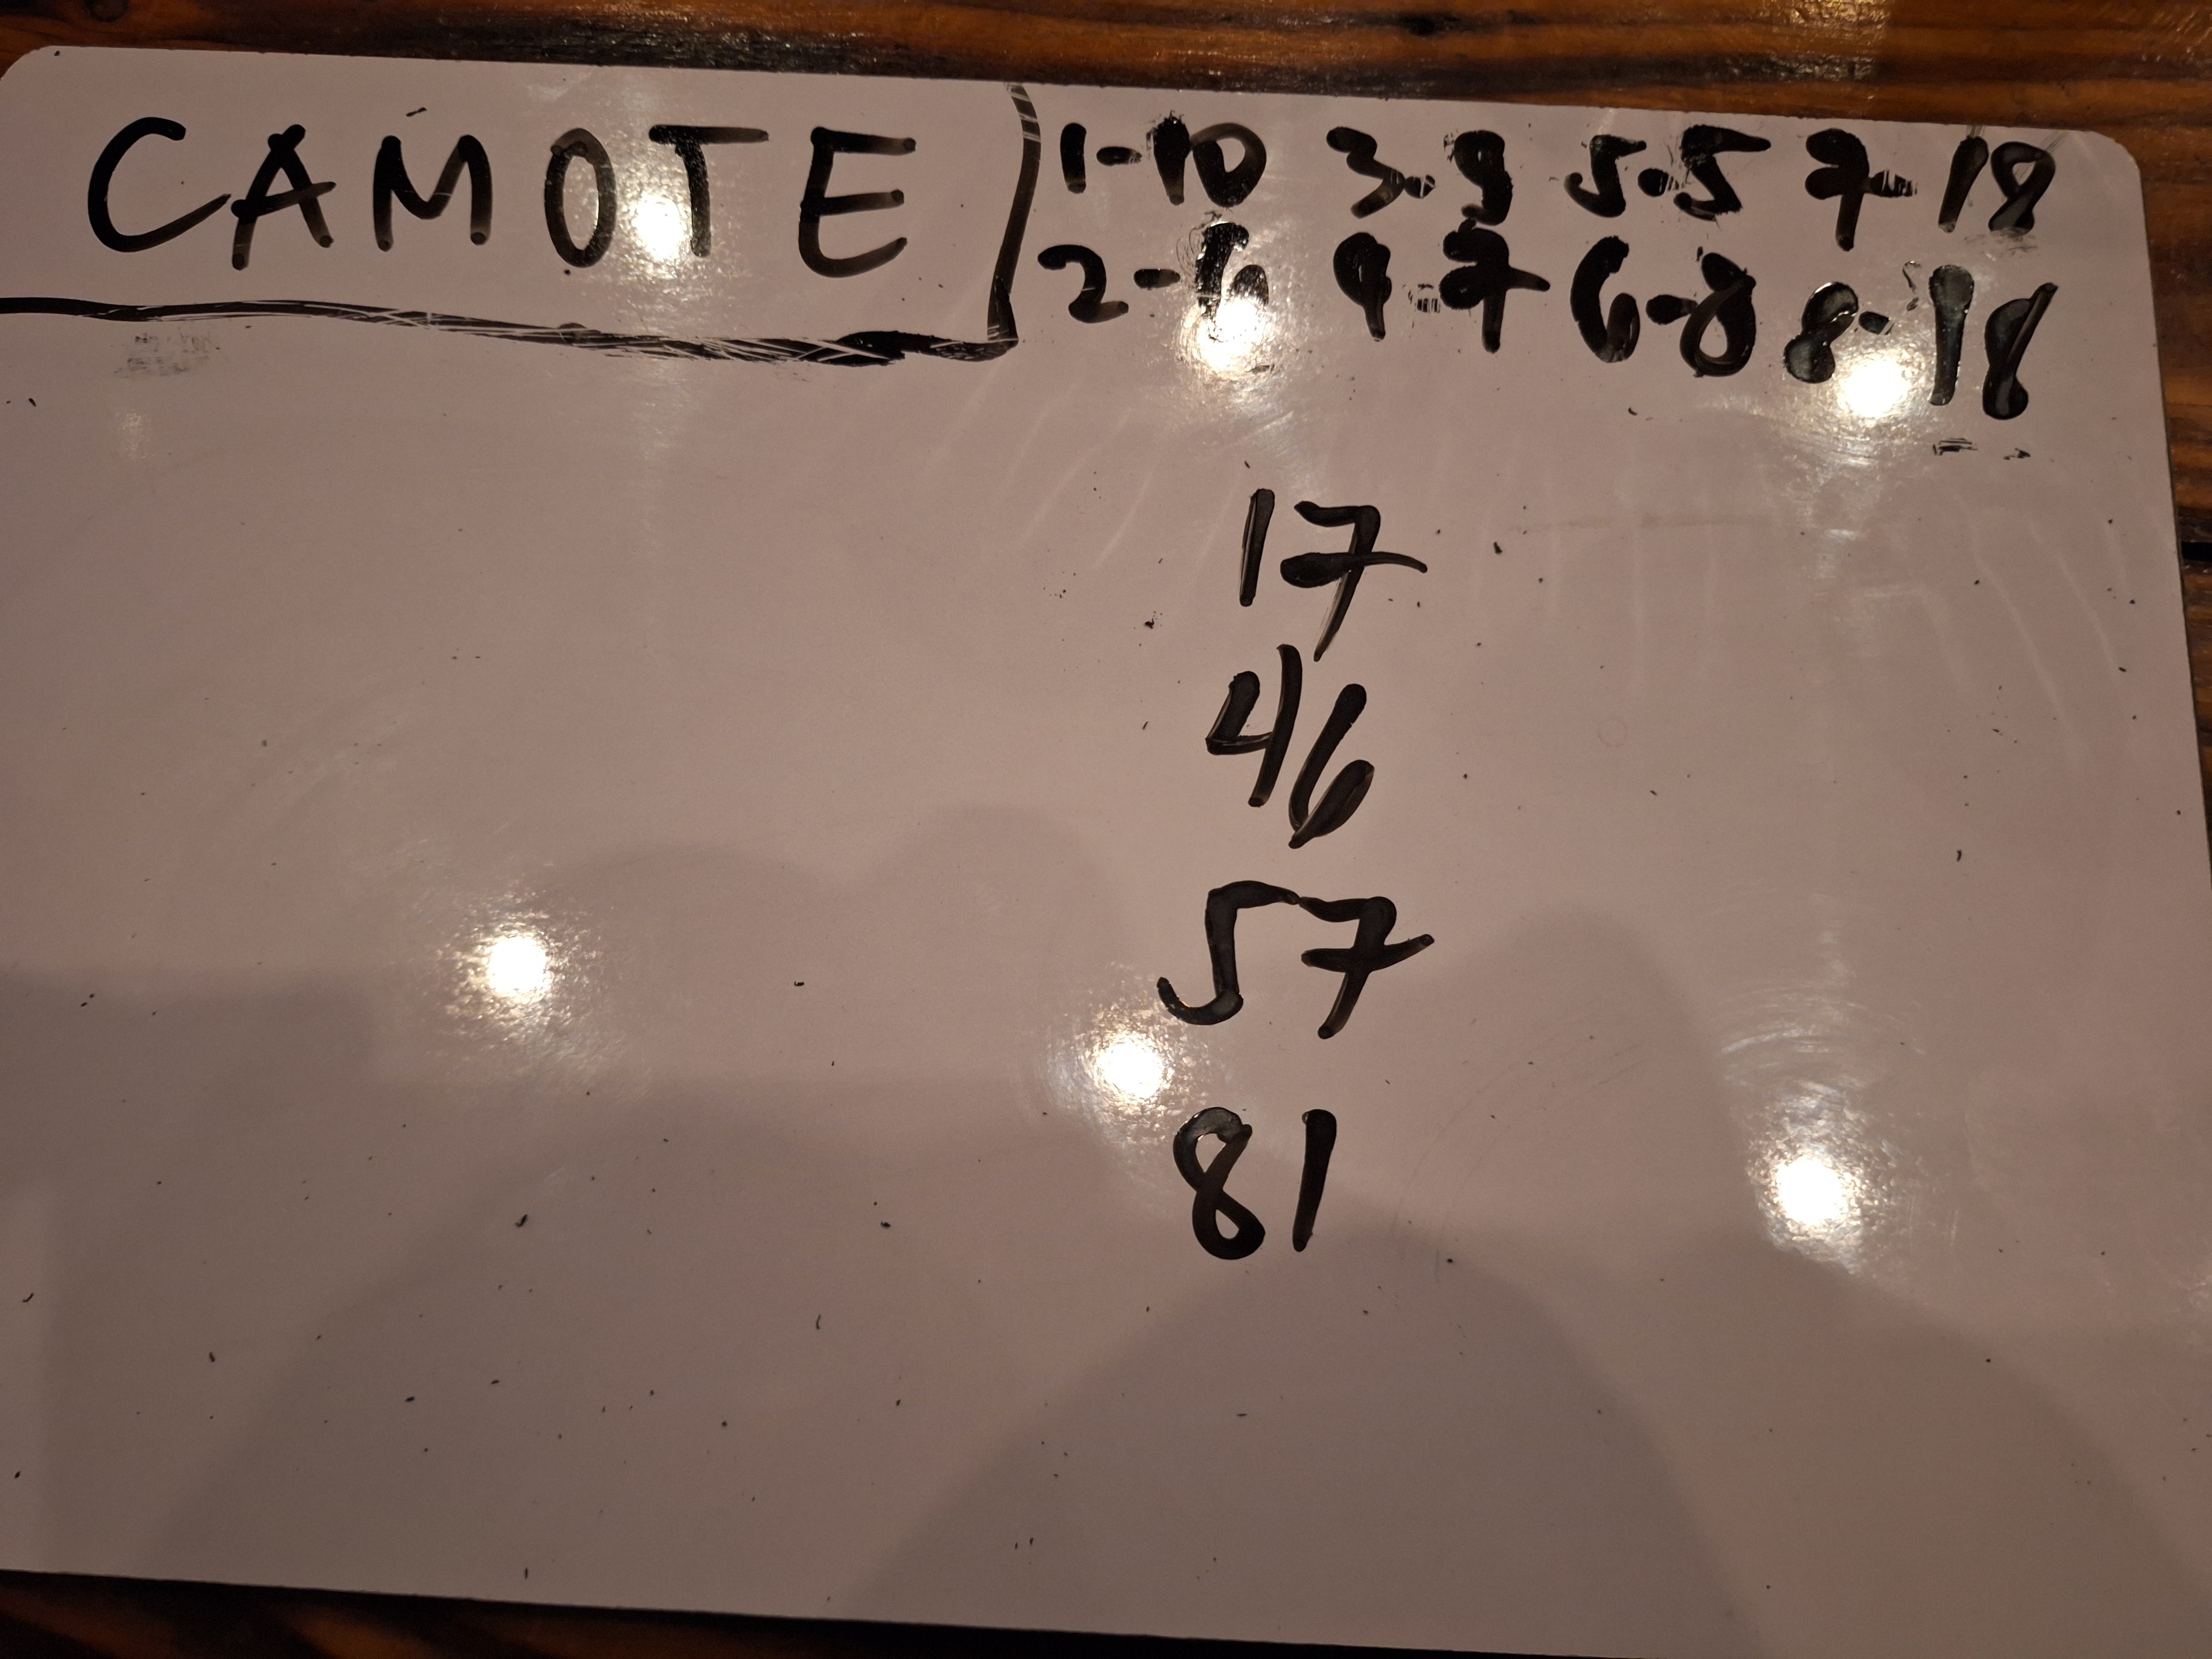 CAMOTE 1-10 3-9 5-5 7-18
2-6 4-7 6-8 8-18
17
46
57
81